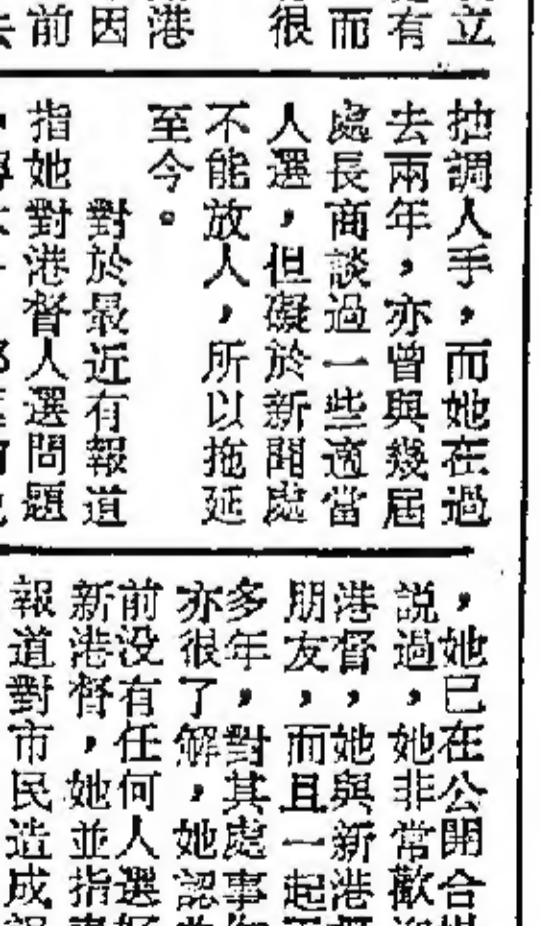 立
有
而
很
港
因
前
抽調人手，而她在過
去兩年，亦曾與幾屆
處長商談過一些適當
人選，但礙於新聞處
不能放人，所以拖延
至今。
對於最近有報道
指她對港督人選問題
，她已在公開合
説過，她非常歡
港督，她與新港
朋友，而且一起
多年，對其處事
亦很了解，她認
前没有任何人選
新港督，她並指
報道對市民造成